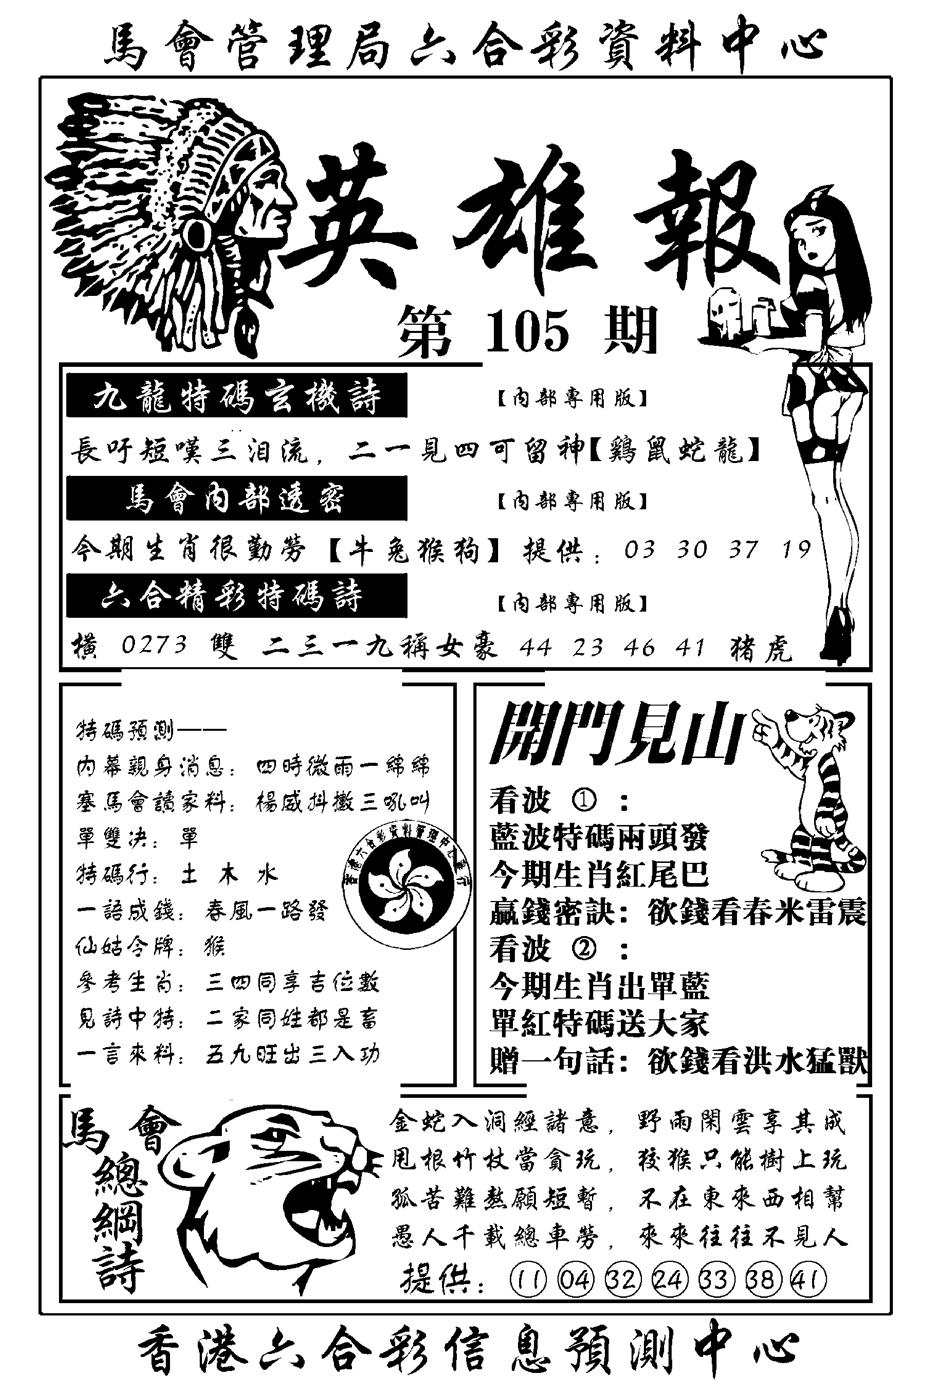 馬會管理局六合彩資料中心
英雄報
第 105 期
九龍特碼玄機詩 【內部專用版】
長吁短嘆三泪流，二一見四可留神【鷄鼠蛇龍】
馬會內部透密 【內部專用版】
今期生肖很勤勞【牛兔猴狗】提供：03 30 37 19
六合精彩特碼詩 【內部專用版】
橫 0273 雙 二三一九稱女豪 44 23 46 41 猪虎
特碼預測——
內幕親身消息：四時微雨一綿綿
塞馬會讀家料：楊威抖擻三吼叫
單雙决：單
特碼行：土 木 水
一語成錢：春風一路發
仙姑令牌：猴
參考生肖：三四同享吉位數
見詩中特：二家同姓都是畜
一言來料：五九旺出三入功
香港六合彩資料管理中心發行
開門見山
看波 ①：
藍波特碼兩頭發
今期生肖紅尾巴
贏錢密訣：欲錢看春米雷震
看波 ②：
今期生肖出單藍
單紅特碼送大家
贈一句話：欲錢看洪水猛獸
馬會
總綱詩
金蛇入洞經諸意，野雨閑雲享其成
甩根竹杖當貪玩，狡猴只能樹上玩
孤苦難熬願短暫，不在東來西相幫
愚人千載總車勞，來來往往不見人
提供：⑪ 04 32 24 33 38 41
香港六合彩信息預測中心